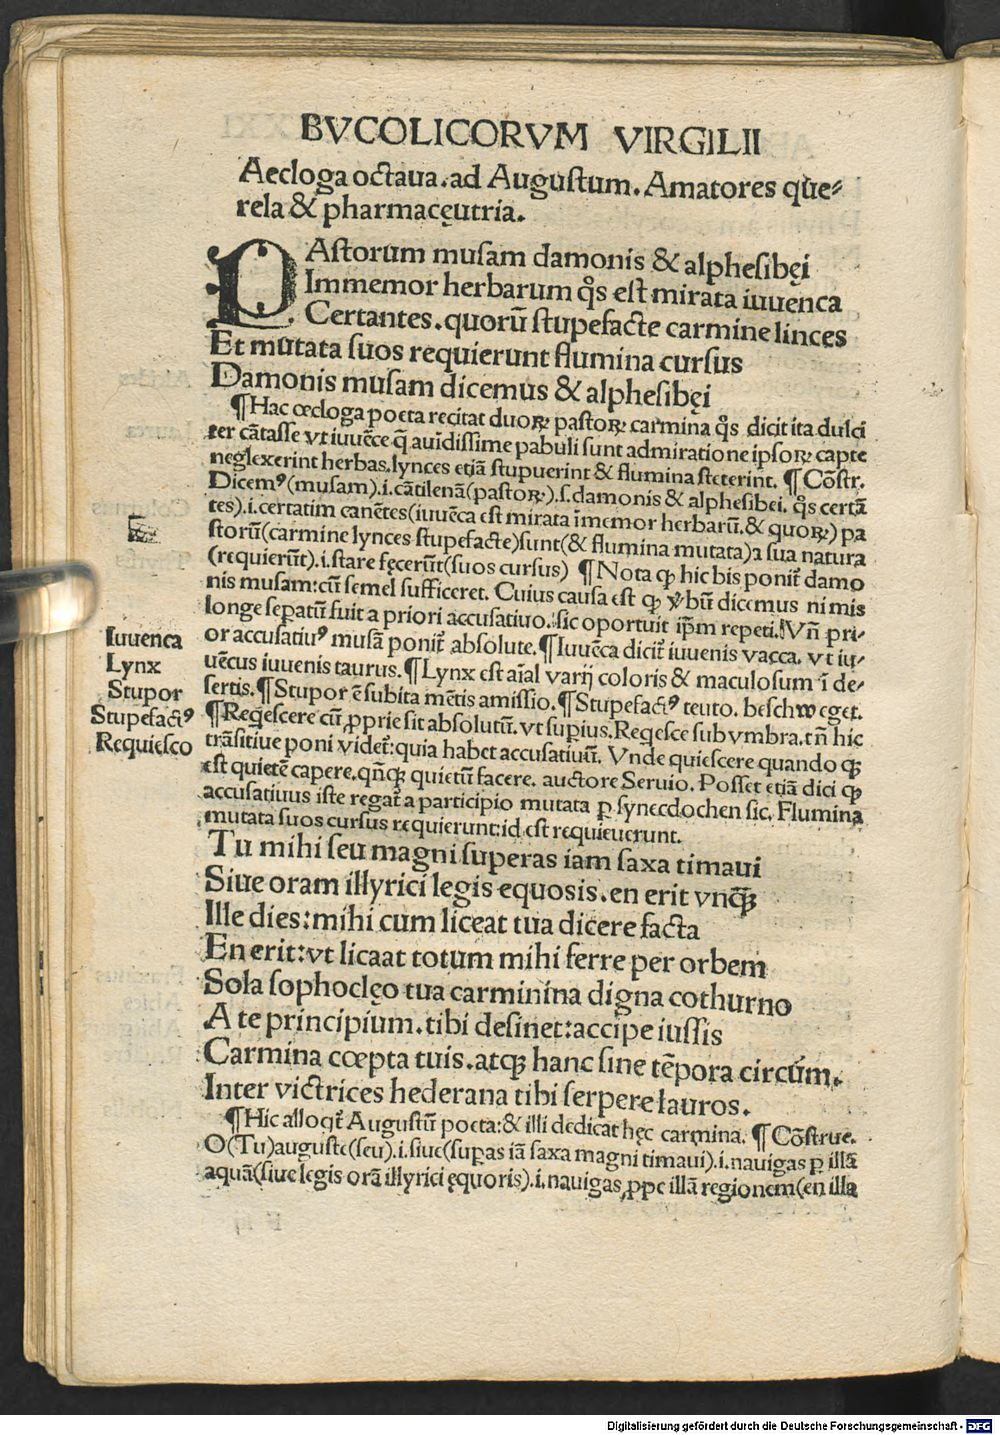 BVCOLICORVM VIRGILII
Aecloga octaua. ad Augustum. Amatores que⸗
rela & pharmacęutria.
PAstorum musam damonis & alphesibęi
Immemor herbarum q̊s est mirata iuuenca
Certantes. quorū stupefacte carmine linces
Et mutata suos requierunt flumina cursus
Damonis musam dicemus & alphesibęi
¶Hac œcloga poeta recitat duoꝝ pastoꝝ carmina q̊s dicit ita dulci
ter cātasse vt iuuēce q̄ auidissime pabuli sunt admiratione ipsoꝝ capte
neglexerint herbas. lynces etiā stupuerint & flumina steterint. ¶Cōstr.
Dicemꝰ(musam).i.cātilenā(pastoꝝ).s.damonis & alphesibei. q̊s certā
tes).i.certatim canētes(iuuēca est mirata īmemor herbarū.& quoꝝ) pa
storū(carmine lynces stupefacte)sunt(& flumina mutata)a sua natura
(requierūt).i.stare fęcerūt(suos cursus) ¶Nota ꝙ hic bis ponit̄ damo
nis musam:cū semel sufficeret. Cuius causa est ꝙ v̓bū dicemus nimis
longe sepatū fuit a priori accusatiuo. sic oportuit ip̄m repeti. Vn̄ pri⸗
or accusatiuꝰ musā ponit̄ absolute.¶Iuuēca dicit̄ iuuenis vacca. vt iu⸗
uēcus iuuenis taurus.¶Lynx est aīal varij coloris & maculosum ī de⸗
sertis.¶Stupor ē subita mētis amissio.¶Stupefactꝰ teuto. beschweget.
¶Reqescere cū ꝓprie sit absolutū. vt supius. Reqesce sub vmbra. tn̄ hic
trāsitiue poni videt̄:quia habet accusatiuū. Vnde quiescere quando ꝙ
est quietē capere. qn̄ꝙ quietū facere. auctore Seruio. Posset etiā dici ꝙ
accusatiuus iste regat̄ a participio mutata ꝑ synecdochen sic. Flumina
mutata suos cursus requierunt:id est requieuerunt.
Iuuenca
Lynx
Stupor
Stupefactꝰ
Requiesco
Tu mihi seu magni superas iam saxa timaui
Siue oram illyrici legis equosis. en erit vnqꝫ
Ille dies:mihi cum liceat tua dicere facta
En erit:vt licaat totum mihi ferre per orbem
Sola sophoclęo tua carminina digna cothurno
A te principium. tibi desinet:accipe iussis
Carmina cœpta tuis. atqꝫ hanc sine tēpora circū.
Inter victrices hederana tibi serpere lauros.
¶Hic alloqt̄ Augustū poeta:& illi dedicat hęc carmina. ¶Cōstrue.
O(Tu)auguste(seu).i.siue(supas iā saxa magni timaui).i.nauigas ꝑ illā
aquā(siue legis orā illyrici ęquoris).i.nauigas ꝓpe illā regionem(en illa
Digitalisierung gefördert durch die Deutsche Forschungsgemeinschaft - DFG